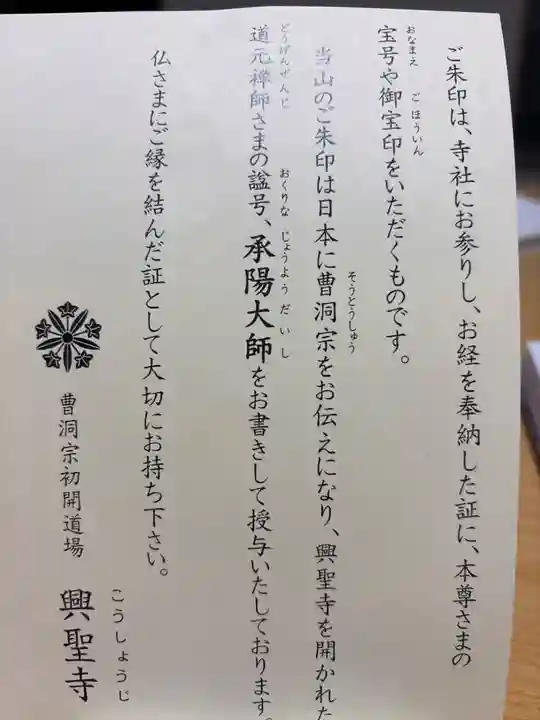 ご朱印は、寺社にお参りし、お経を奉納した証に、本尊さまの
おなまえ ごほういん
宝号や御宝印をいただくものです。
そうとうしゅう
当山のご朱印は日本に曹洞宗をお伝えになり、興聖寺を開かれた
どうげんぜんじ おくりな じょうようだいし
道元禅師さまの諡号、承陽大師をお書きして授与いたしております。
仏さまにご縁を結んだ証として大切にお持ち下さい。
曹洞宗初開道場
こうしょうじ
興聖寺